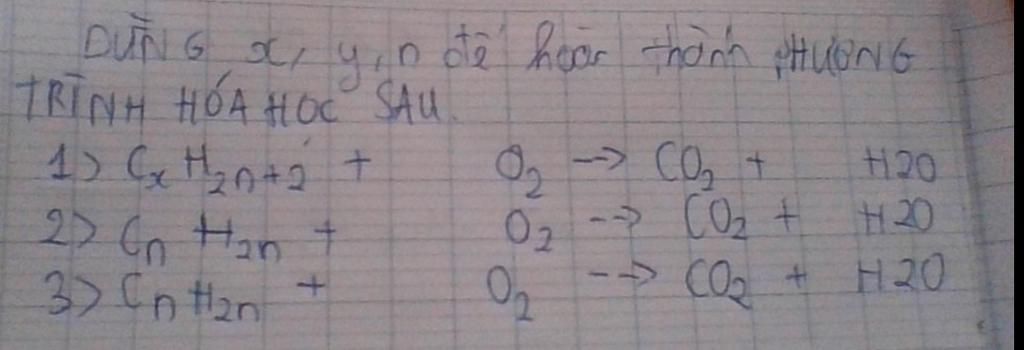 DÙNG x, y, n để hoàn thành PHƯƠNG
TRÌNH HÓA HỌC SAU.
1> CxH2n+2 + O2 --> CO2 + H2O
2> CnH2n + O2 --> CO2 + H2O
3> CnH2n + O2 --> CO2 + H2O